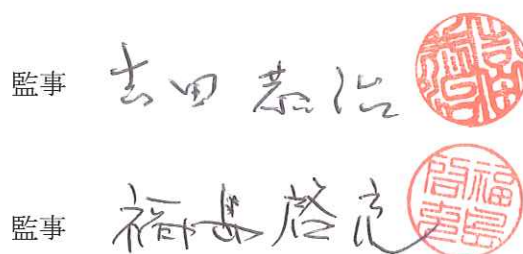 監事 吉田恭治
監事 福島啓克